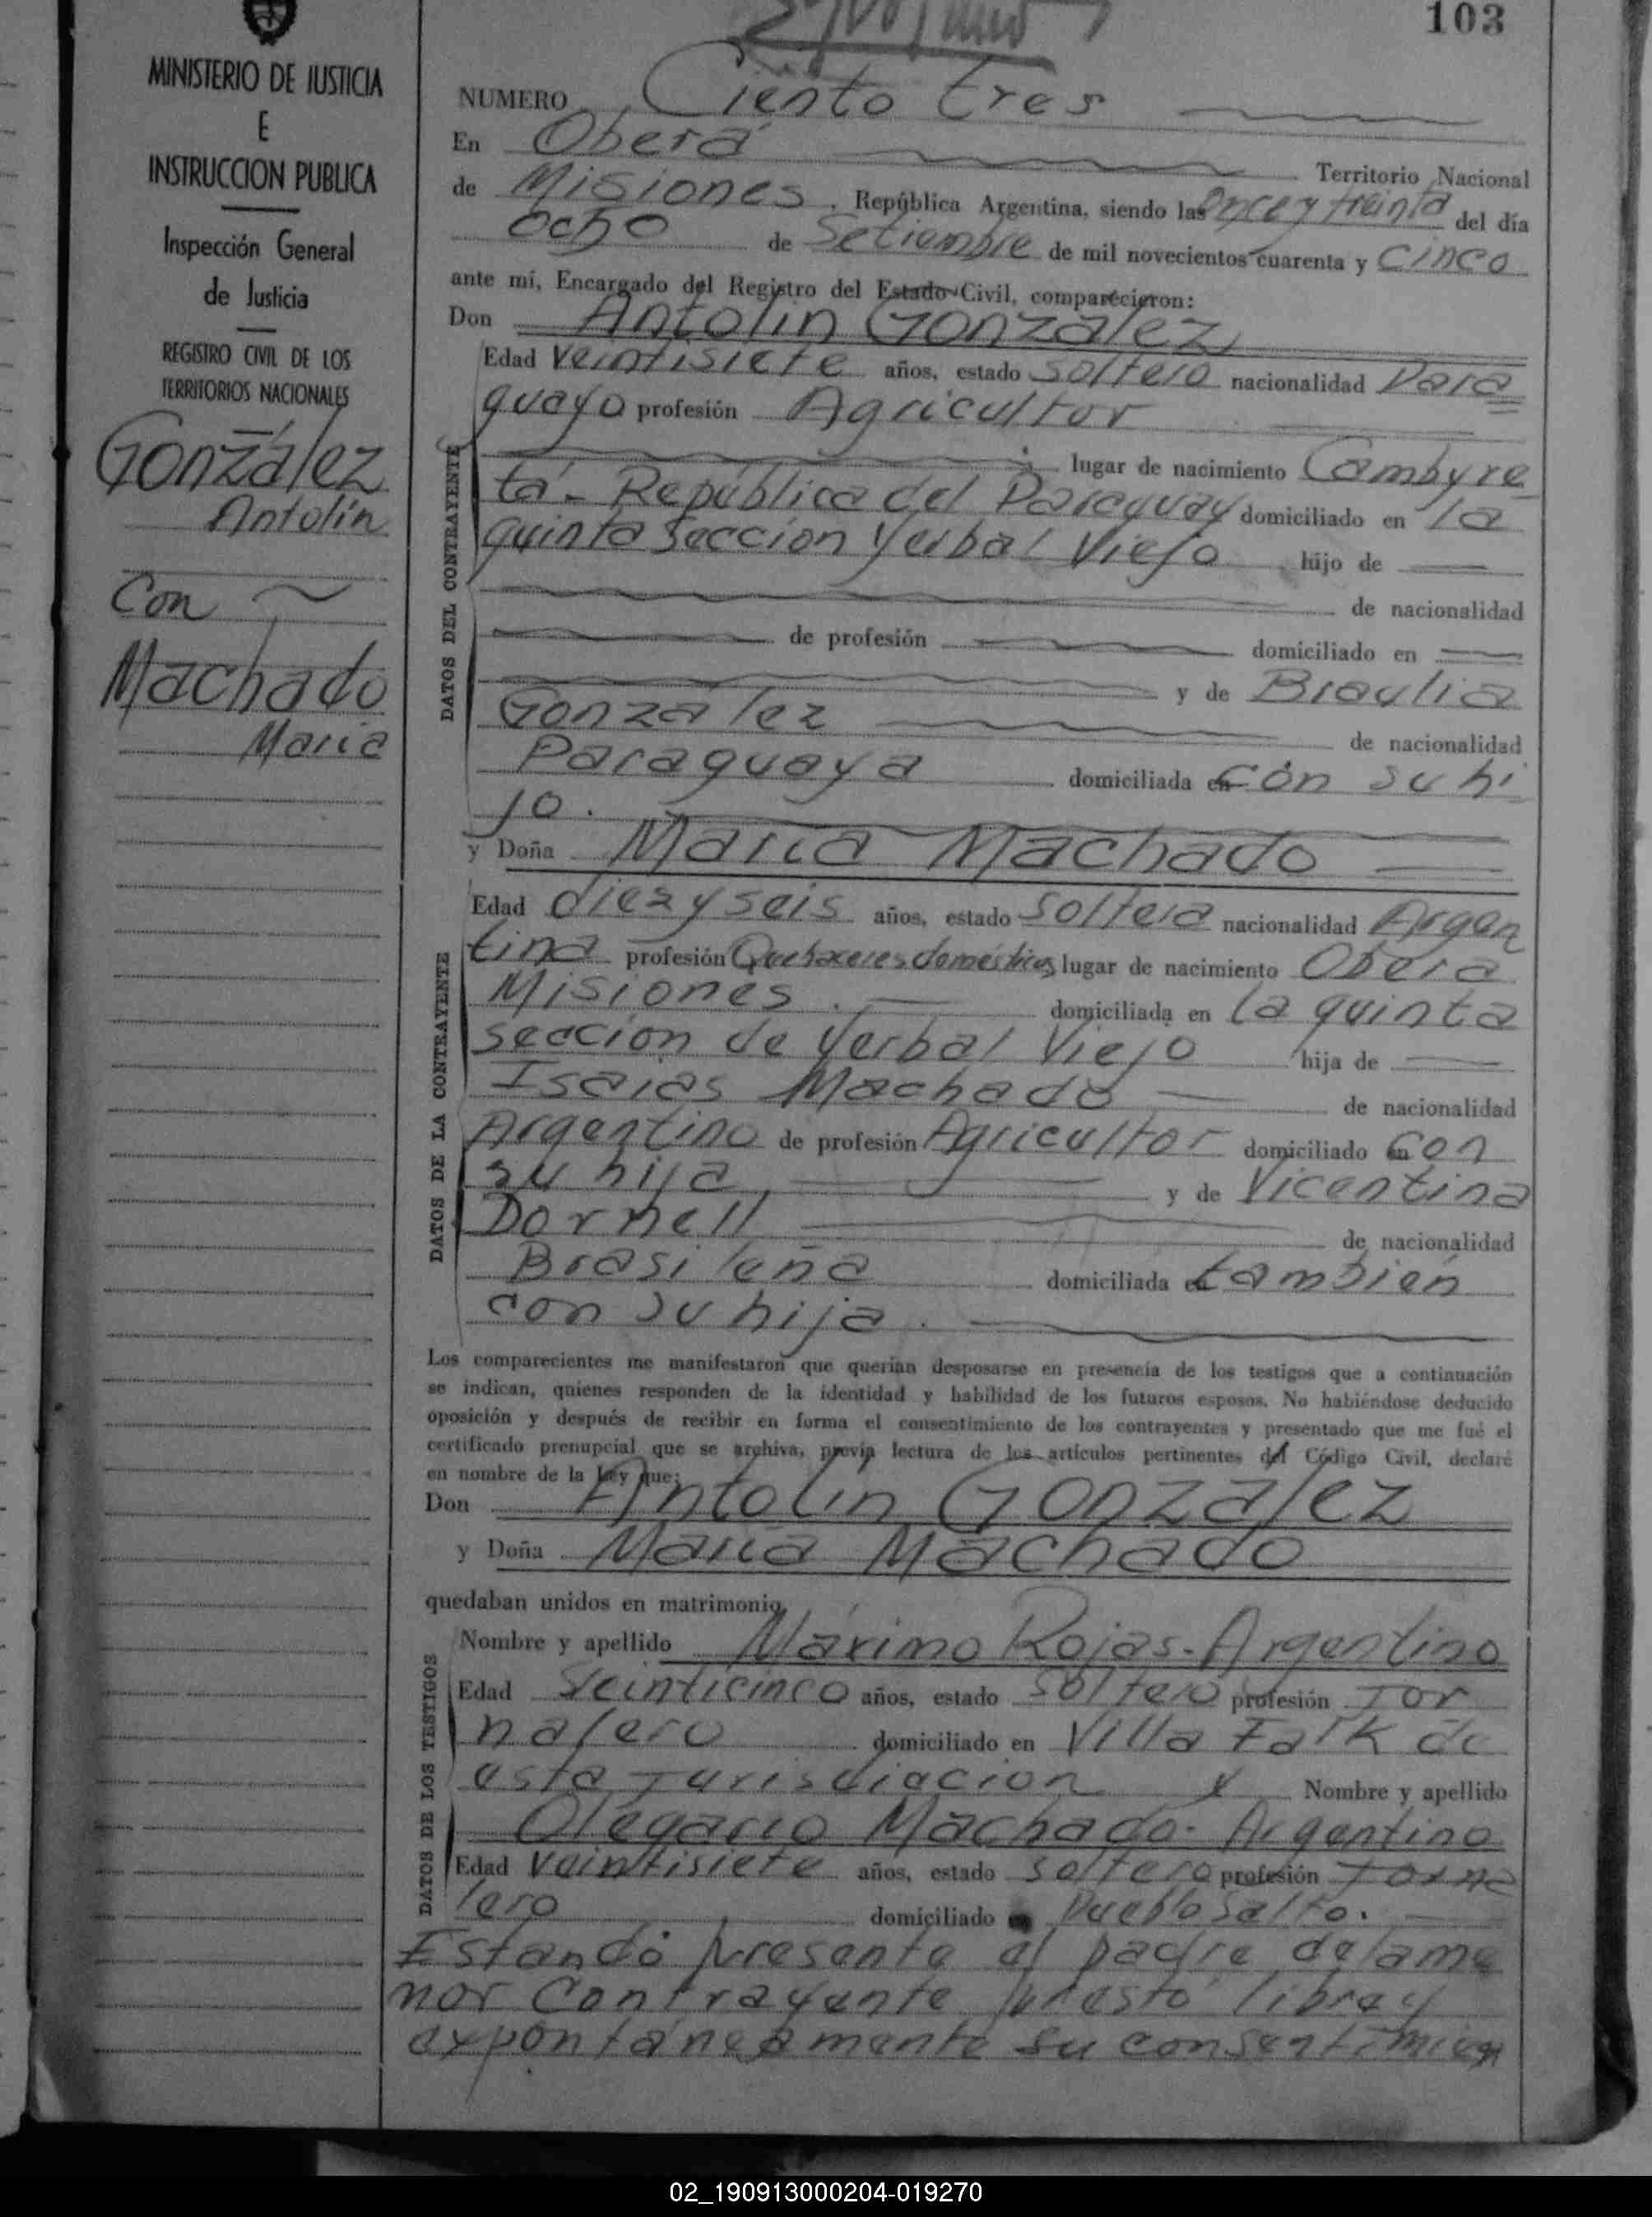 103
MINISTERIO DE JUSTICIA
E
INSTRUCCION PUBLICA
Inspección General
de Justicia
REGISTRO CIVIL DE LOS
TERRITORIOS NACIONALES
González
Antolín
Con
Machado
María
NUMERO Ciento tres
En Oberá Territorio Nacional
de Misiones, República Argentina, siendo las once y treinta del día
ocho de Setiembre de mil novecientos cuarenta y cinco
ante mí, Encargado del Registro del Estado Civil, comparecieron:
Don Antolín González
DATOS DEL CONTRAYENTE
Edad veintisiete años, estado soltero nacionalidad Para
guayo profesión Agricultor
lugar de nacimiento Cambyre
tá - República del Paraguay domiciliado en la
quinta Sección Yerbal Viejo hijo de
de nacionalidad
de profesión domiciliado en
y de Braulia
Gonzalez de nacionalidad
Paraguaya domiciliada en con su hi
jo.
y Doña María Machado
DATOS DE LA CONTRAYENTE
Edad diez y seis años, estado soltera nacionalidad Argen
tina profesión Quehaceres domésticos lugar de nacimiento Oberá
Misiones. domiciliada en la quinta
sección de Yerbal Viejo hija de
Isaias Machado de nacionalidad
Argentino de profesión Agricultor domiciliado en con
su hija, y de Vicentina
Dornell de nacionalidad
Brasileña domiciliada en también
con su hija.
Los comparecientes me manifestaron que querían desposarse en presencia de los testigos que a continuación
se indican, quienes responden de la identidad y habilidad de los futuros esposos. No habiéndose deducido
oposición y después de recibir en forma el consentimiento de los contrayentes y presentado que me fué el
certificado prenupcial que se archiva, previa lectura de los artículos pertinentes del Código Civil, declaré
en nombre de la Ley que:
Don Antolín González
y Doña María Machado
quedaban unidos en matrimonio.
DATOS DE LOS TESTIGOS
Nombre y apellido Máximo Rojas - Argentino
Edad Veinticinco años, estado soltero profesión Jor
nalero domiciliado en Villa Falk de
esta Jurisdiacion y Nombre y apellido
Olegario Machado - Argentino
Edad veintisiete años, estado soltero profesión Jorna
lero domiciliado Pueblo Salto.
Estando presente el padre de la me
nor Contrayente prestó libre y
expontáneamente su consentimien
02_190913000204-019270